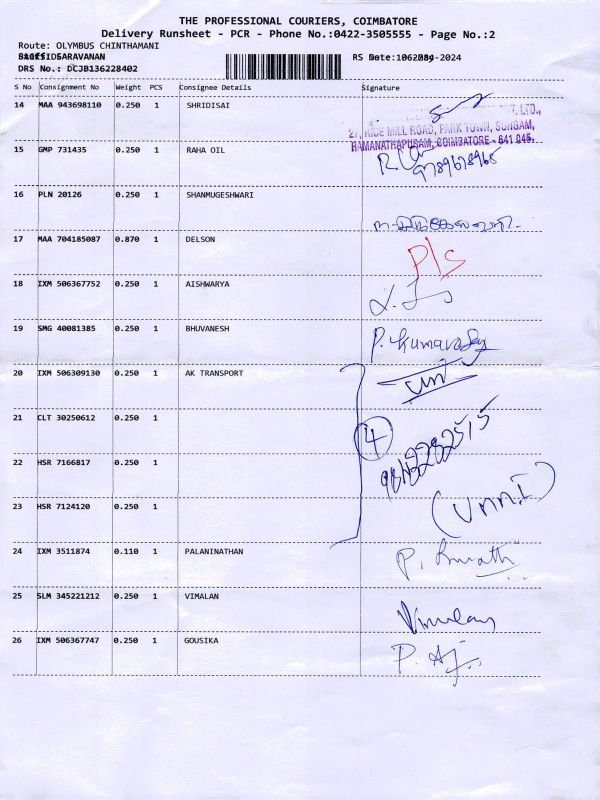 THE PROFESSIONAL COURIERS, COIMBATORE
Delivery Runsheet - PCR - Phone No.:0422-3505555 - Page No.:2
Route: OLYMBUS CHINTHAMANI
SARAVANAN RS Date:
DRS No.: DCJB136228402
S No Consignment No Weight PCS Consignee Details Signature
14 MAA 943698110 0.250 1 SHRIDISAI
PVT. LTD.,
27, RICE MILL ROAD, PARK TOWN, SUNGAM,
RAMANATHAPURAM, COIMBATORE - 641 045.
15 GMP 731435 0.250 1 RAHA OIL
9789678965
16 PLN 20126 0.250 1 SHANMUGESHWARI
17 MAA 704185087 0.870 1 DELSON P/S
18 IXM 506367752 0.250 1 AISHWARYA
19 SMG 40081385 0.250 1 BHUVANESH P. Kumarasamy
20 IXM 506309130 0.250 1 AK TRANSPORT
21 CLT 30250612 0.250 1 4
22 HSR 7166817 0.250 1
23 HSR 7124120 0.250 1 (Unni)
24 IXM 3511874 0.110 1 PALANINATHAN
25 SLM 345221212 0.250 1 VIMALAN Vimalan
26 IXM 506367747 0.250 1 GOUSIKA